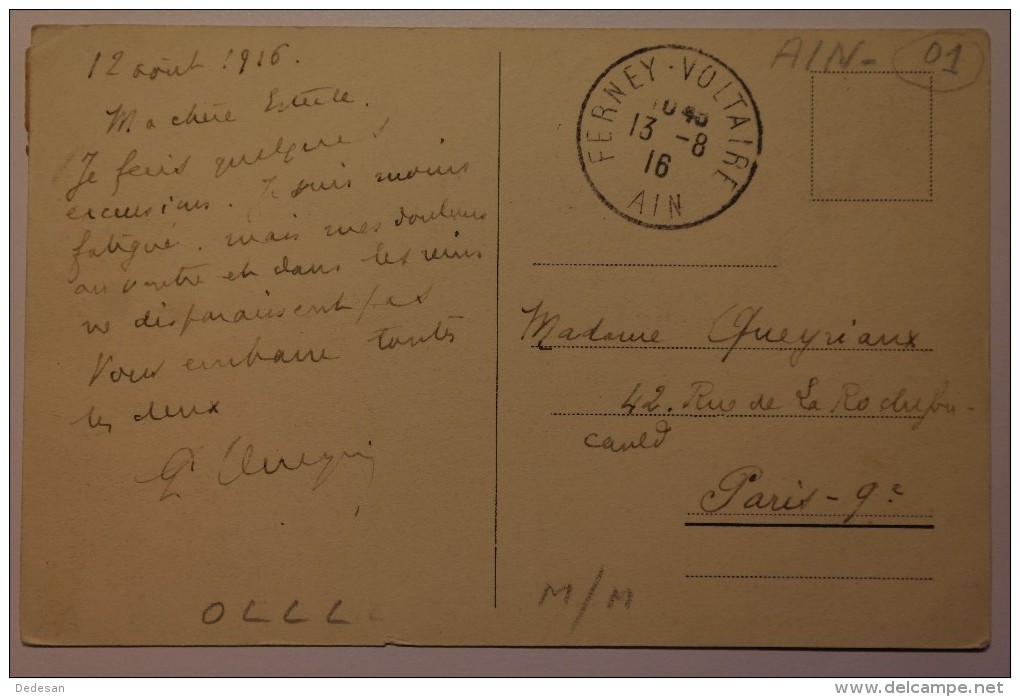 12 août 1916.
Ma chère
Je fais quelques
excursions. Je suis moins
fatigué. mais mes douleurs
au ventre et dans les reins
ne disparaissent pas
Vous embrasse toutes
les deux
FERNEY-VOLTAIRE
13 -8
16
AIN
AIN- 01
Madame Queyriaux
42. Rue de La Rochefou-
cauld
Paris-9e
M/M
OLLLL
Dedesan
www.delcampe.net